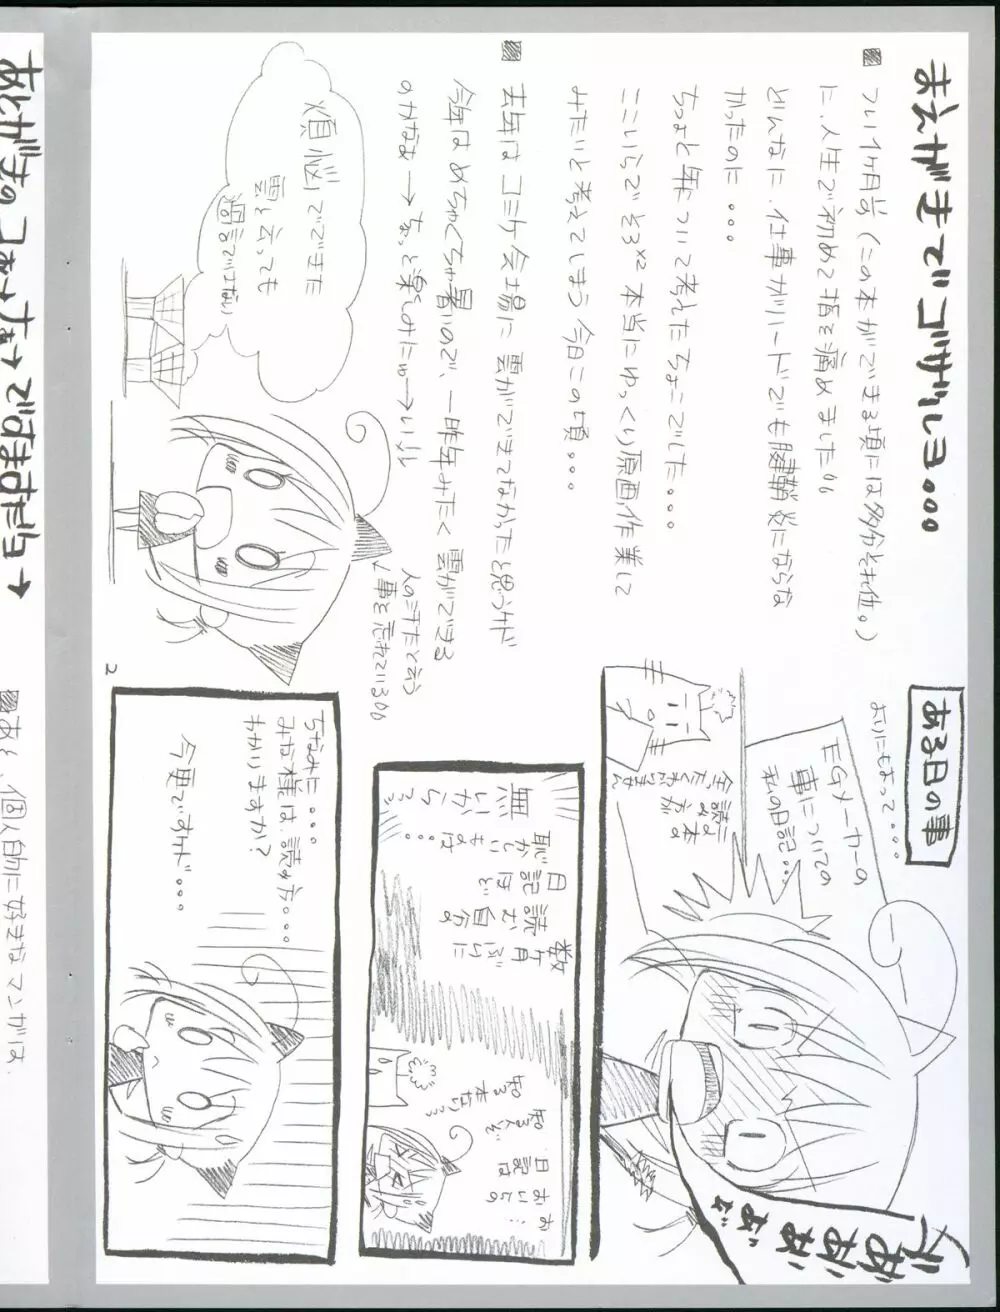 まえがきでゴザルヨ。。。。
■ つい1ヶ月半（この本ができる頃には多分それ位。）
に、人生で初めて指を痛めました。
どんなに、仕事がハードでも腱鞘炎にならな
かったのに・・・
ちょっと年ついて考えたちょこでした。。。。
ここいらでそろ×2本当にゆっくり原画作業して
みたいと考えてしまう今日この頃。。。。
■ 去年はコミケ会場に雲ができてなかったと思うケド
今年はめちゃくちゃ暑いので、一昨年みたく雲ができる
のかなぁー→ちょっと楽しみにゅ→い!!
人のネタだと云う
事を忘れている
煩悩でできた
雲と云っても
過言ではない
2
ある日の事
よりにもよって・・・
EGメーカーの
事についての
私の日記・・・
読み方が
全くわかりません
ぎゃああああ
数ヶ月ぶりに
自分の
日記読むほど
恥かしいものは
無いから・・・
知る人ぞ
知る本なり
日記は
おいらの
お・・・
ちなみに・・・・
みな様は、読み方・・・・
わかりますか?
今更ですケド・・・・
あとがきのコォナァーですますだョー
■ あと、個人的に好きなマンガは、